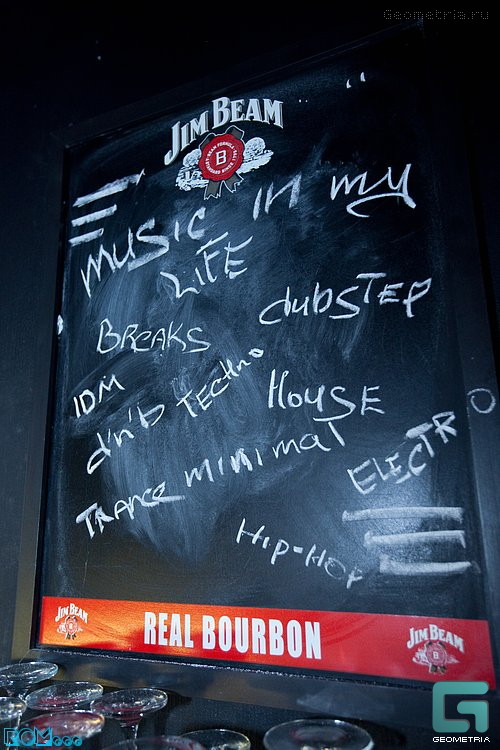 Geometria.ru
JIM BEAM
B
music in my
LIFE
dubSTEP
BReAKS
IDM
d'n'b TecHno
House
Trance minimal
ELECTRO
HIP-HOP
JIM BEAM
REAL BOURBON
JIM BEAM
GEOMETRIA